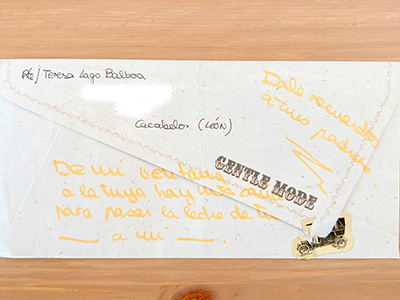 Rte/ Teresa Lago Balboa
Cacabelos (LEÓN)
Dale recuerdos
a tus padres
GENTLE MODE
De mi ventana
a la tuya hay una
para pasar la leche de tu
____ a mi ____.